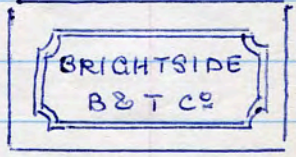 BRIGHTSIDE
B & T Cº